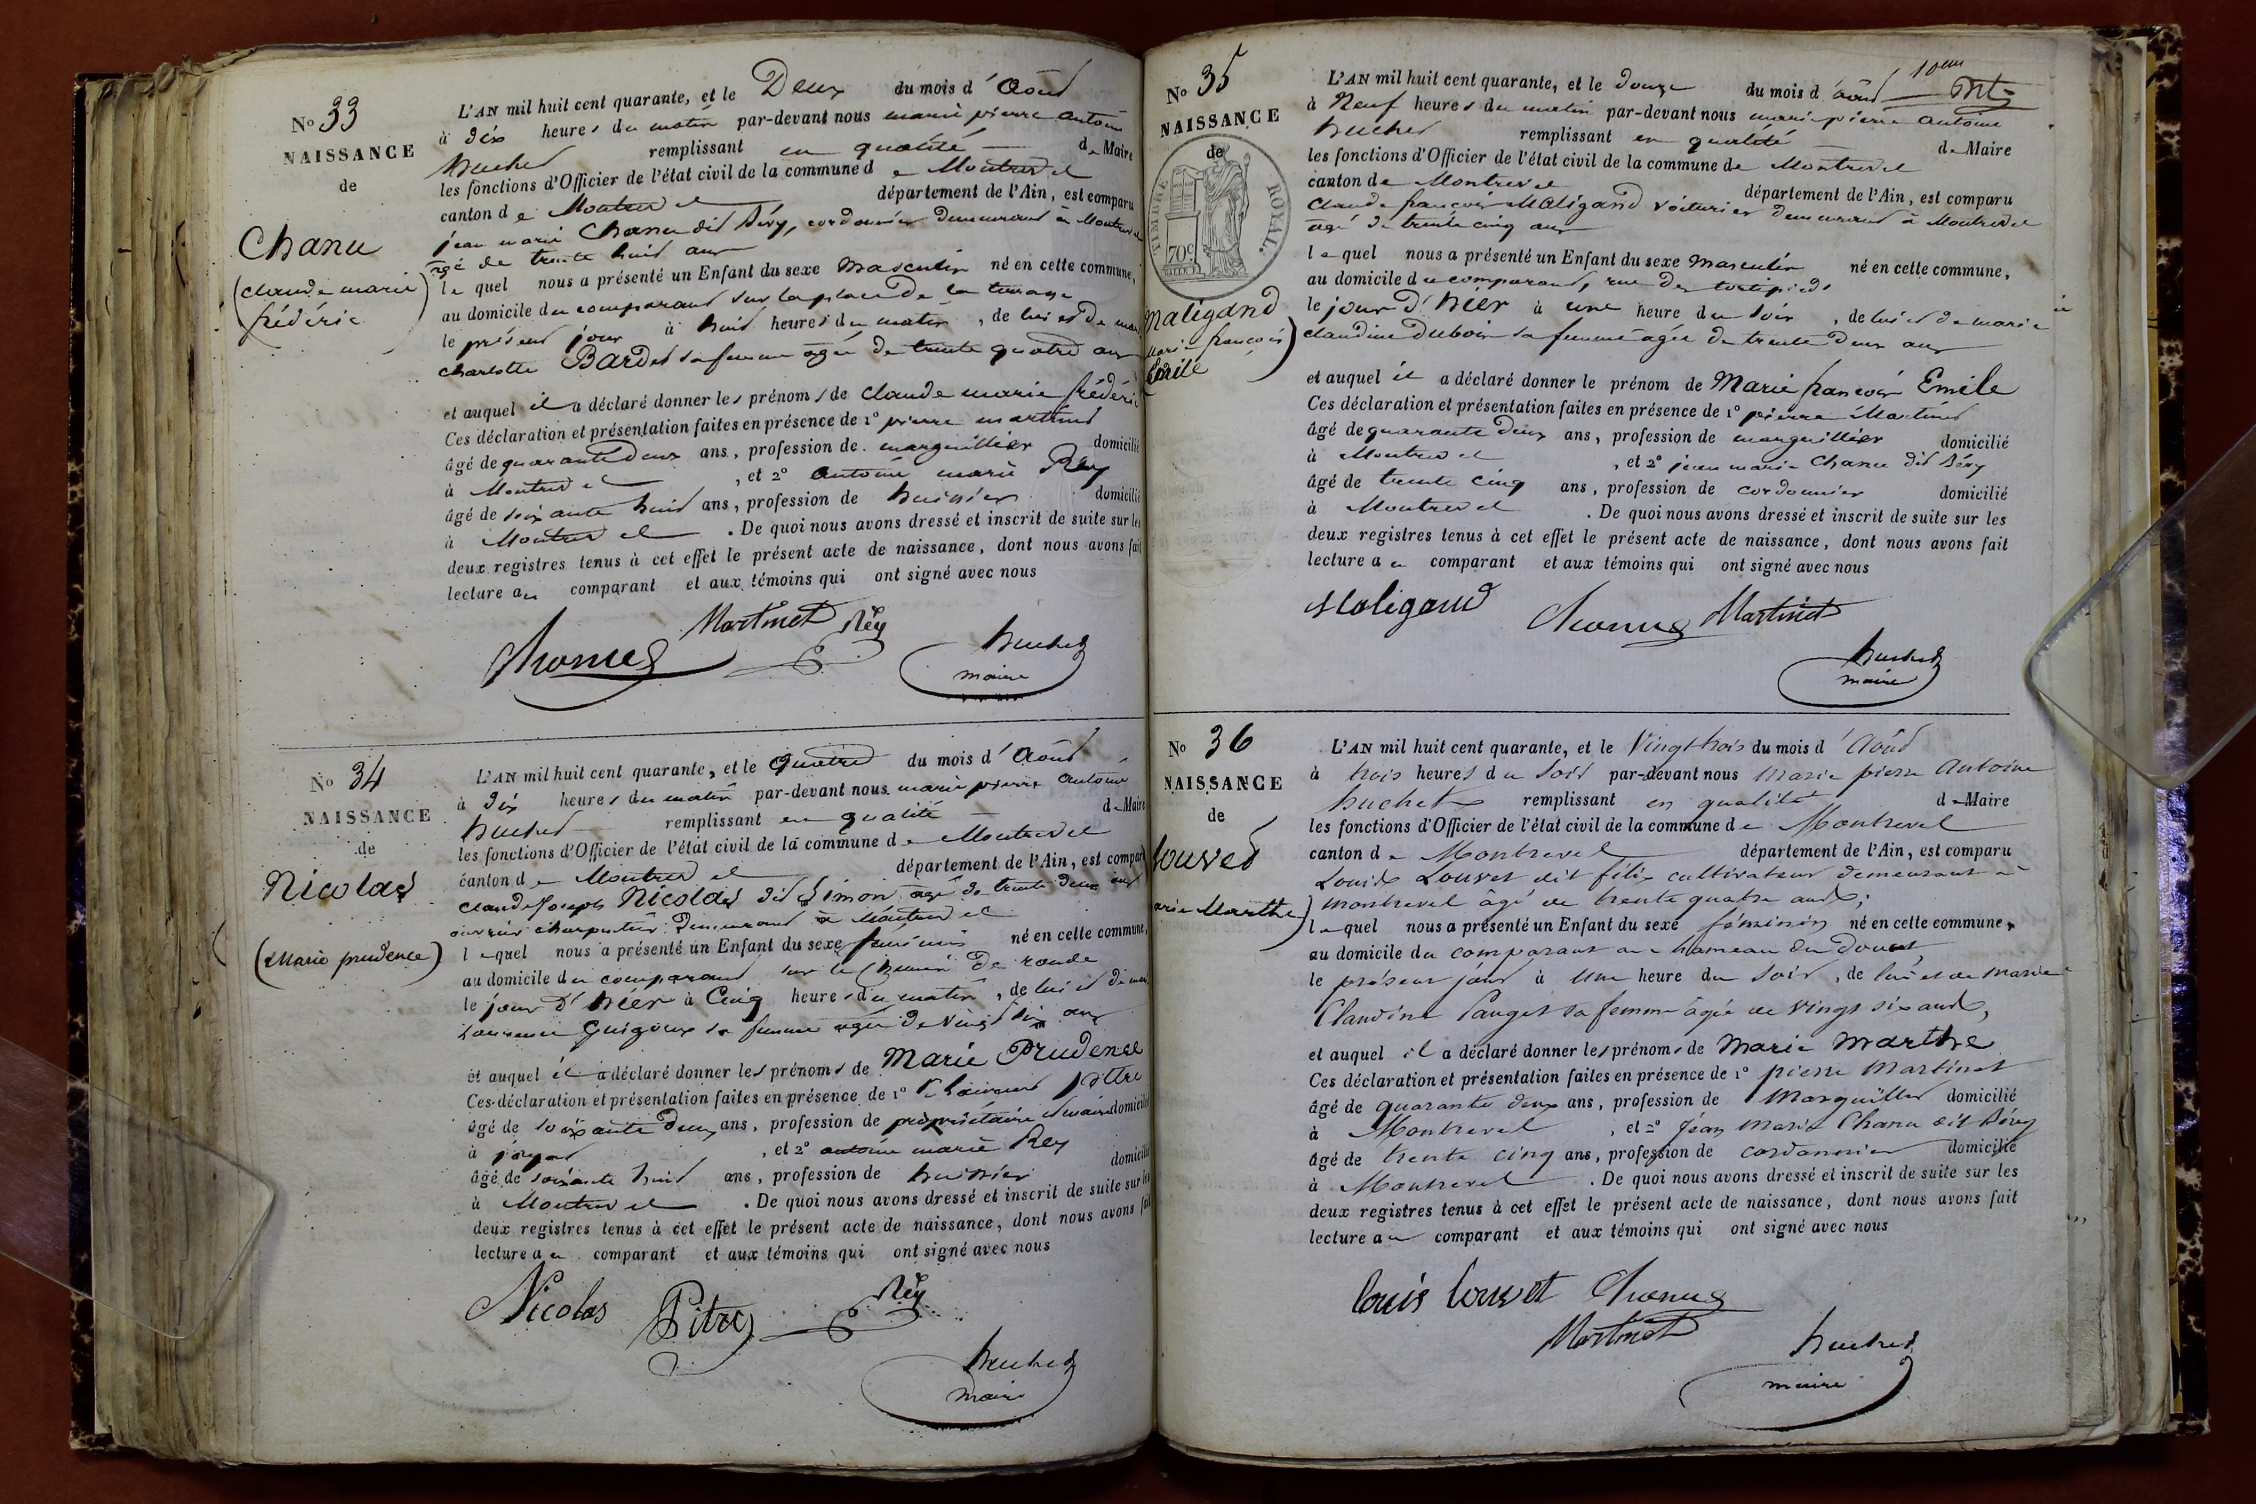 No 33
NAISSANCE
de
Chanu
(claude marie
frédéric)
L'AN mil huit cent quarante, et le Deux du mois d'Août
à dix heures du matin par-devant nous marie pierre antoine
huchet remplissant en qualité de Maire
les fonctions d'Officier de l'état civil de la commune de Montrevel
canton de Montrevel département de l'Ain, est comparu
jean marie Chanu dit Sévy, cordonnier demeurant à Montrevel
agé de trente huit ans
lequel nous a présenté un Enfant du sexe masculin né en cette commune,
au domicile du comparant sur la place de la terrasse
le présent jour à huit heures du matin, de lui et de marie
charlotte Bardet sa femme agée de trente quatre ans
et auquel il a déclaré donner les prénoms de claude marie frédéric
Ces déclaration et présentation faites en présence de 1° pierre martinet
âgé de quarante deux ans, profession de marguillier domicilié
à Montrevel, et 2° antoine marie Rey
âgé de soixante huit ans, profession de huissier domicilié
à Montrevel. De quoi nous avons dressé et inscrit de suite sur les
deux registres tenus à cet effet le présent acte de naissance, dont nous avons fait
lecture au comparant et aux témoins qui ont signé avec nous
Martinet Rey
Chanu huchet
maire
No 34
NAISSANCE
de
Nicolas
(Marie prudence)
L'AN mil huit cent quarante, et le quatre du mois d'Août
à dix heures du matin par-devant nous marie pierre antoine
huchet remplissant en qualité de Maire
les fonctions d'Officier de l'état civil de la commune de Montrevel
canton de Montrevel département de l'Ain, est comparu
claude joseph Nicolas dit Simon agé de trente deux ans
ouvrier charpentier demeurant à Montrevel
lequel nous a présenté un Enfant du sexe féminin né en cette commune,
au domicile du comparant sur le chemin de ronde
le jour d'hier à Cinq heures du matin, de lui et de marie
Laurence Guigoux sa femme agée de vingt six ans
et auquel il a déclaré donner les prénoms de Marie Prudence
Ces déclaration et présentation faites en présence de 1° Pitre
âgé de soixante deux ans, profession de propriétaire domicilié
à jayat, et 2° antoine marie Rey
âgé de soixante huit ans, profession de huissier domicilié
à Montrevel. De quoi nous avons dressé et inscrit de suite sur les
deux registres tenus à cet effet le présent acte de naissance, dont nous avons fait
lecture au comparant et aux témoins qui ont signé avec nous
Nicolas Pitre Rey
huchet
maire
No 35
NAISSANCE
de
TIMBRE ROYAL.
70c
Maligand
(Marie françois
Emile)
10em
L'AN mil huit cent quarante, et le douze du mois d'août
à Neuf heures du matin par-devant nous marie pierre antoine
huchet remplissant en qualité de Maire
les fonctions d'Officier de l'état civil de la commune de Montrevel
canton de Montrevel département de l'Ain, est comparu
claude françois Maligand voiturier demeurant à Montrevel
agé de trente cinq ans
lequel nous a présenté un Enfant du sexe masculin né en cette commune,
au domicile du comparant, rue des tortipieds
le jour d'hier à une heure du soir, de lui et de marie
claudine Dubois sa femme agée de trente deux ans
et auquel il a déclaré donner le prénom de Marie françois Emile
Ces déclaration et présentation faites en présence de 1° pierre Martinet
âgé de quarante deux ans, profession de marguillier domicilié
à Montrevel, et 2° jean marie Chanu dit Sévy
âgé de trente cinq ans, profession de cordonnier domicilié
à Montrevel. De quoi nous avons dressé et inscrit de suite sur les
deux registres tenus à cet effet le présent acte de naissance, dont nous avons fait
lecture au comparant et aux témoins qui ont signé avec nous
Maligand Chanu Martinet
huchet
maire
No 36
NAISSANCE
de
Louvet
arie Marthe)
L'AN mil huit cent quarante, et le Vingt trois du mois d'Août
à trois heures du soir par-devant nous Marie pierre Antoine
huchet remplissant en qualité de Maire
les fonctions d'Officier de l'état civil de la commune de Montrevel
canton de Montrevel département de l'Ain, est comparu
Louis Louvet dit félix cultivateur demeurant à
montrevel âgé de trente quatre ans;
lequel nous a présenté un Enfant du sexe féminin né en cette commune,
au domicile du comparant au hameau du Doucet,
le présent jour à Une heure du soir, de lui et de Marie
Claudine Pauget sa femme âgée de vingt six ans,
et auquel il a déclaré donner les prénoms de Marie Marthe
Ces déclaration et présentation faites en présence de 1° pierre Martinet
âgé de quarante deux ans, profession de Marguillier domicilié
à Montrevel, et 2° Jean Marie Chanu dit Sévy
âgé de trente cinq ans, profession de cordonnier domicilié
à Montrevel. De quoi nous avons dressé et inscrit de suite sur les
deux registres tenus à cet effet le présent acte de naissance, dont nous avons fait
lecture au comparant et aux témoins qui ont signé avec nous
Louis Louvet Chanu
Martinet huchet
maire